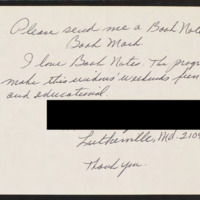 Please send me a Book Notes
Book Mark.
I love Book Notes. The progr
make this widows' weekends fun
and educational.
Lutherville, Md. 2109
Thank you.